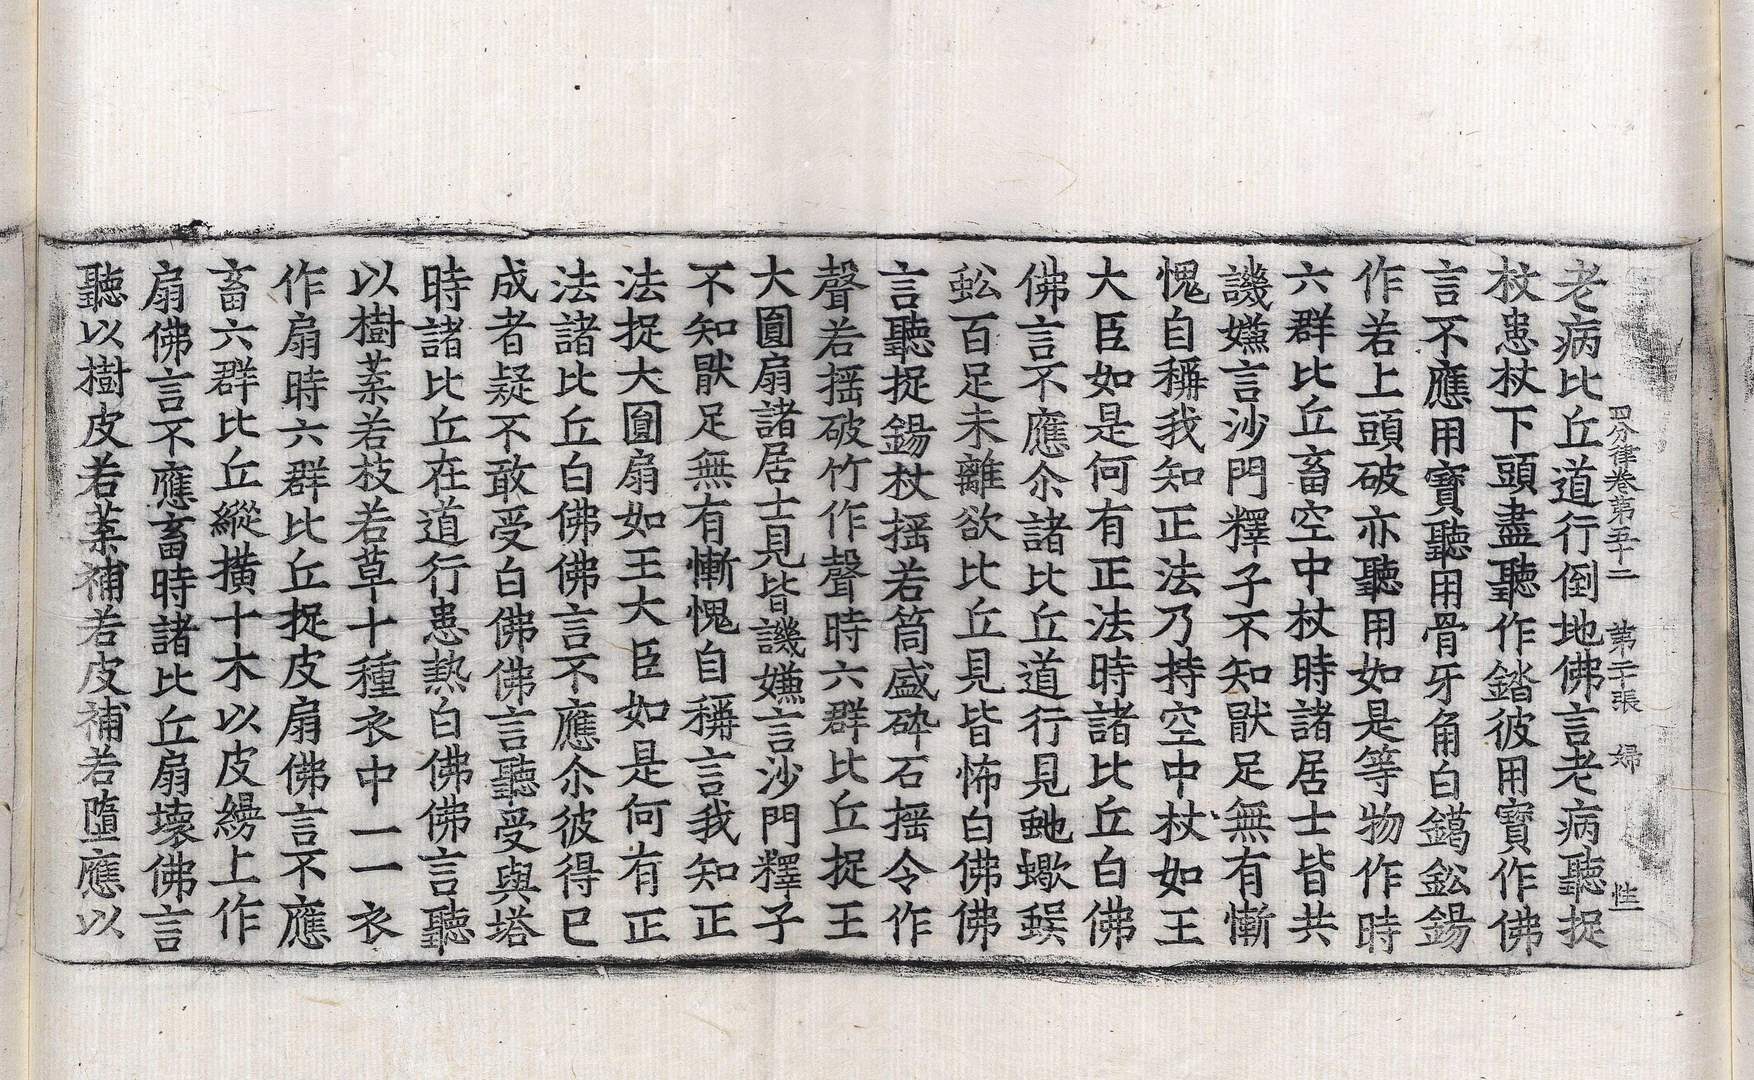 四分律卷第五十二　第二十張　婦　性
老病比丘道行倒地佛言老病聽捉
杖患杖下頭盡聽作錔彼用寶作佛
言不應用寶聽用骨牙角白鑞鈆錫
作若上頭破亦聽用如是等物作時
六群比丘畜空中杖時諸居士皆共
譏嫌言沙門釋子不知猒足無有慚
愧自稱我知正法乃持空中杖如王
大臣如是何有正法時諸比丘白佛
佛言不應尒諸比丘道行見虵蠍蜈
蚣百足未離欲比丘見皆怖白佛佛
言聽捉錫杖搖若筒盛碎石搖令作
聲若搖破竹作聲時六群比丘捉王
大圓扇諸居士見皆譏嫌言沙門釋子
不知猒足無有慚愧自稱言我知正
法捉大圓扇如王大臣如是何有正
法諸比丘白佛佛言不應尒彼得已
成者疑不敢受白佛佛言聽受與塔
時諸比丘在道行患熱白佛佛言聽
以樹葉若枝若草十種衣中一一衣
作扇時六群比丘捉皮扇佛言不應
畜六群比丘縱撗十木以皮縵上作
扇佛言不應畜時諸比丘扇壞佛言
聽以樹皮若葉補若皮補若墮應以